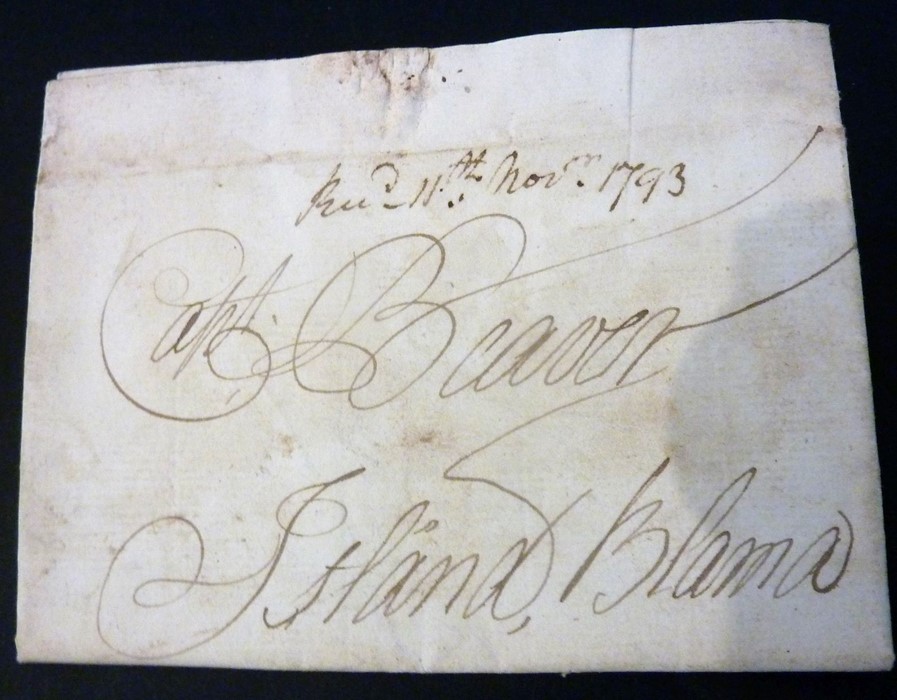 Recd. 11th. Novr. 1793
Capt. Beaver
Island, Blama